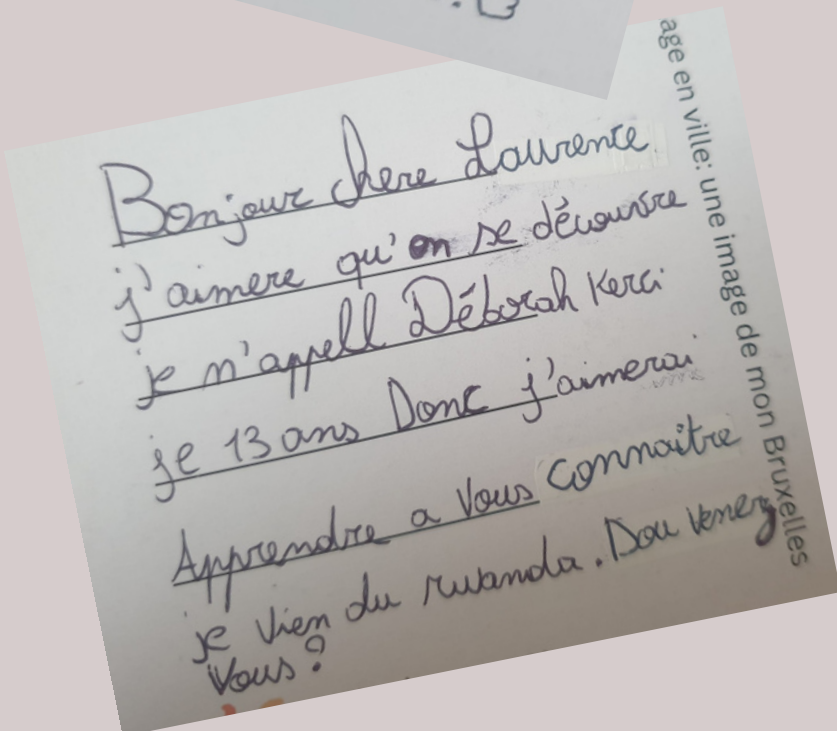 Bonjour chere Laurence
j'aimere qu'on se découvire
je m'appell Déborah Kerci
je 13 ans Donc j'aimerai
Apprendre a Vous connaître
je vien du rwanda. Dou venez
Vous ?
age en ville: une image de mon Bruxelles